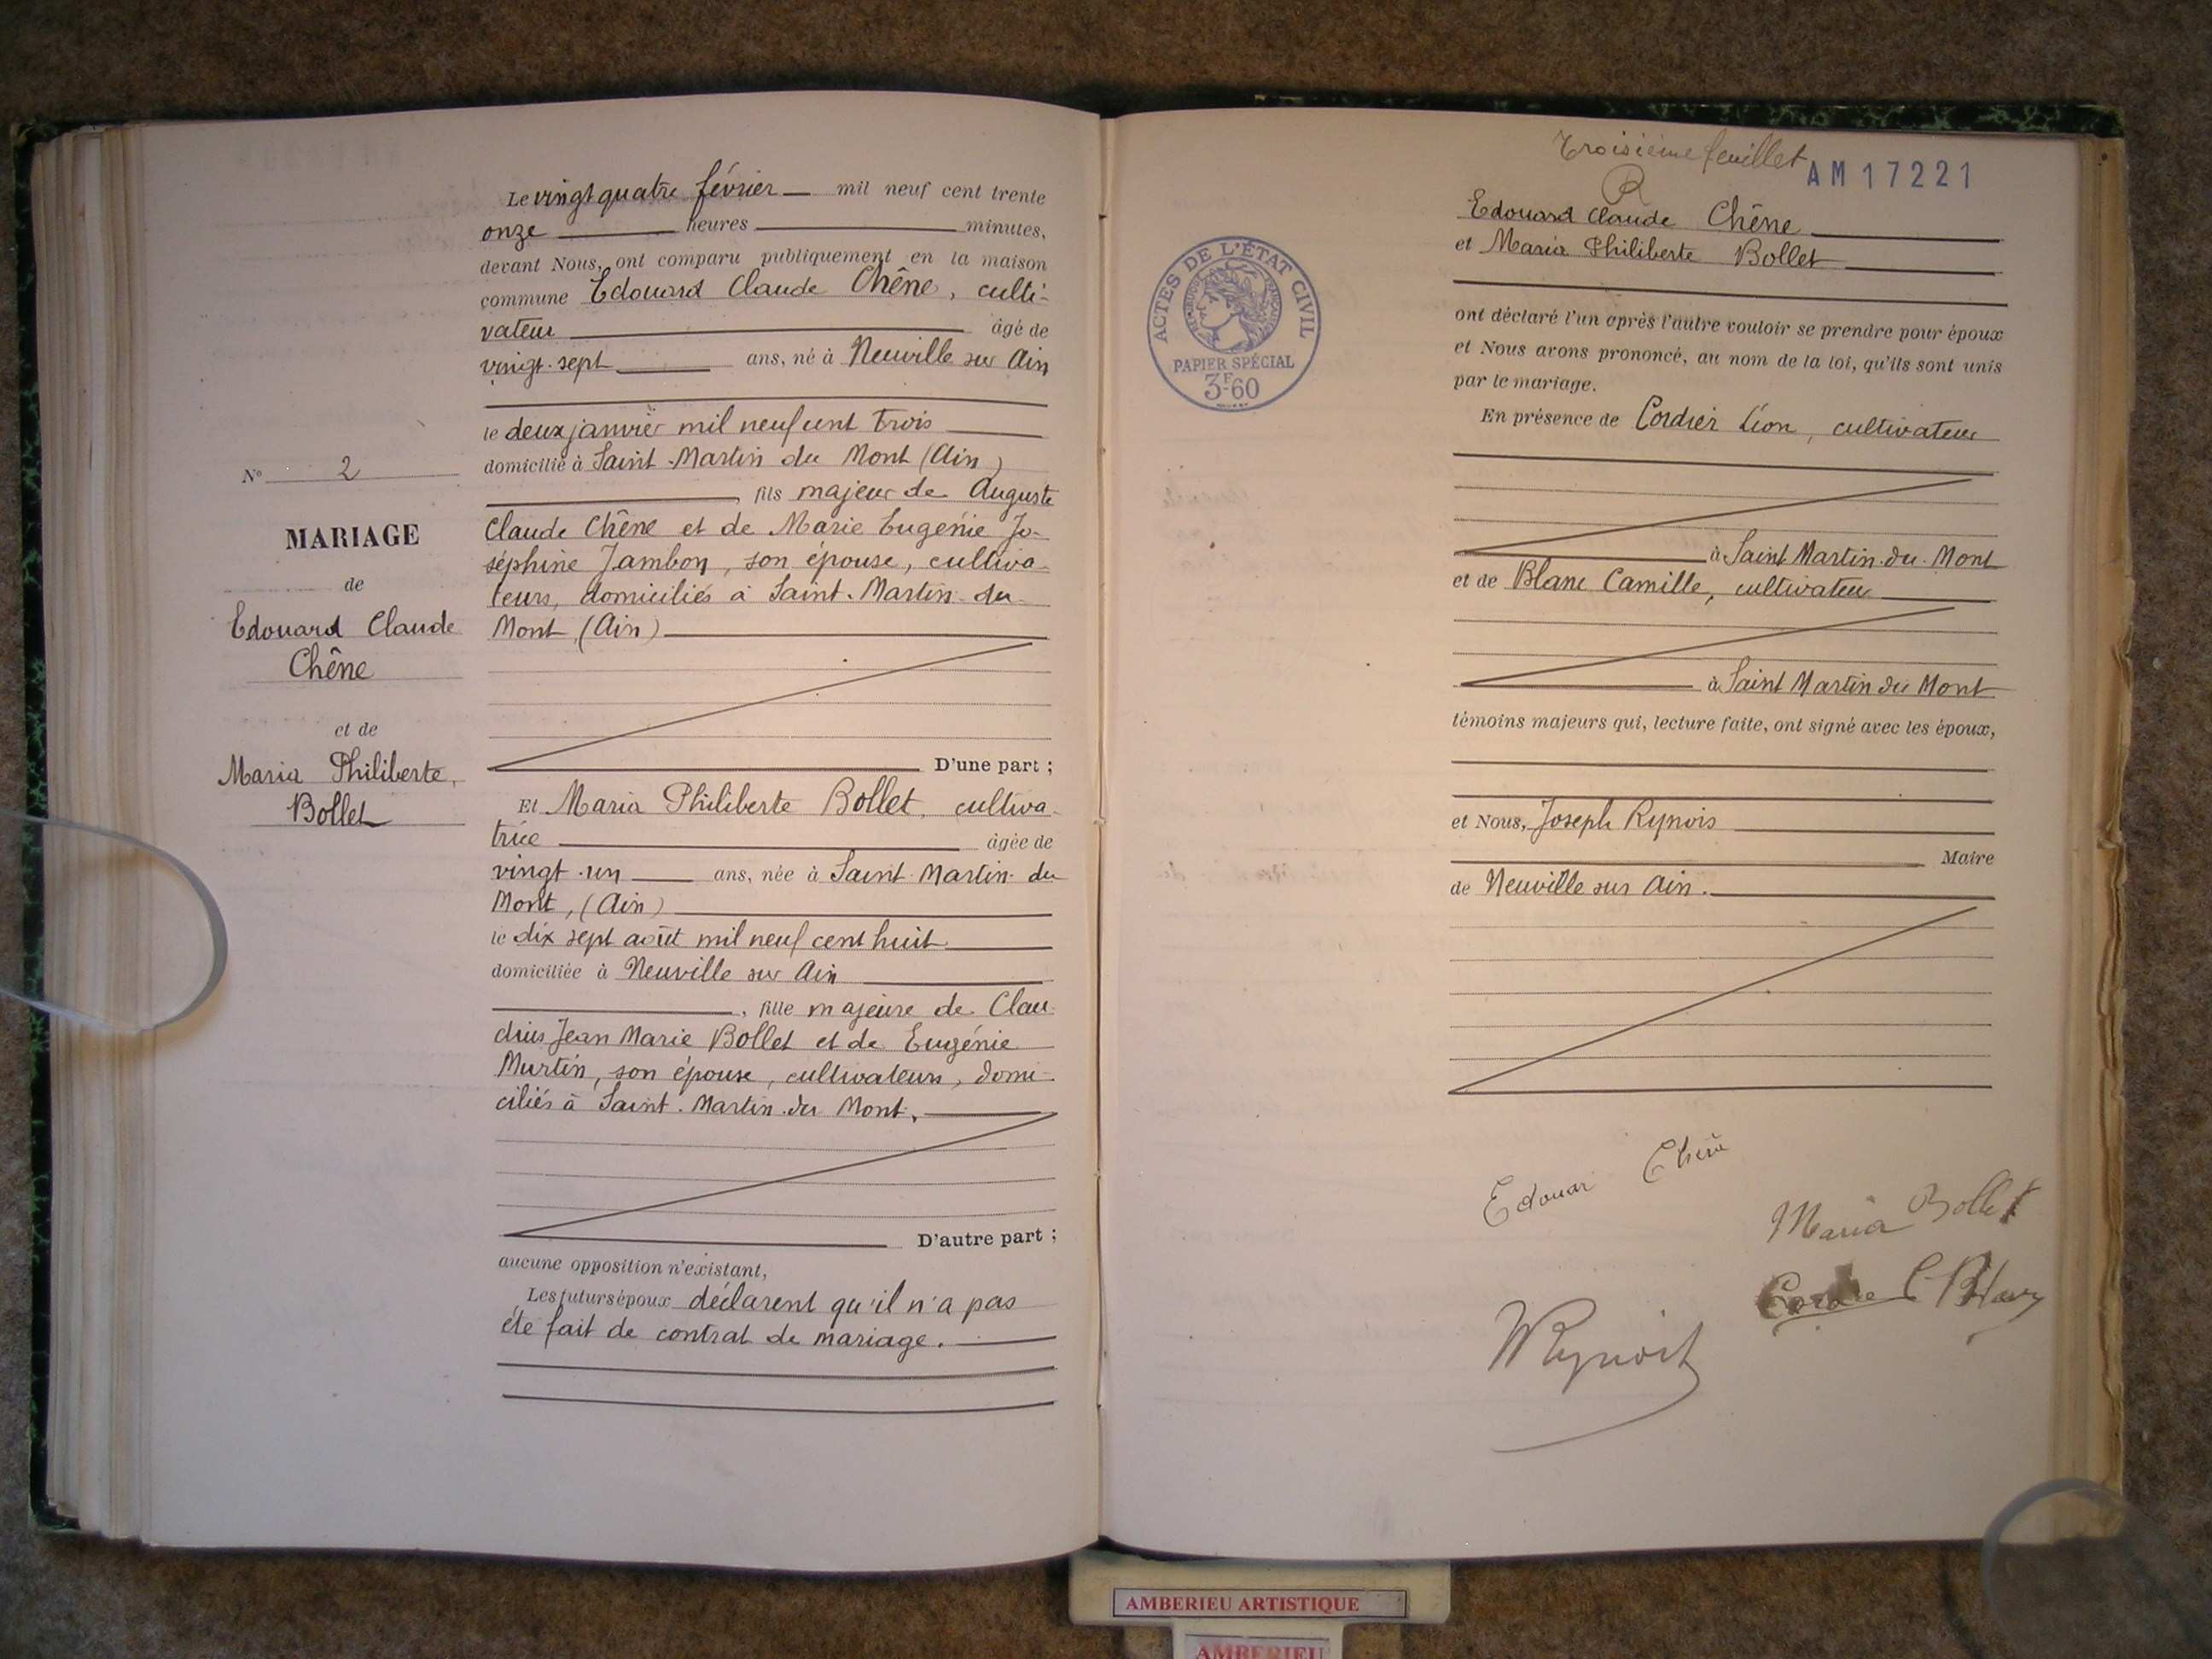 Le vingt quatre février mil neuf cent trente
onze heures minutes,
devant Nous, ont comparu publiquement en la maison
commune Edouard Claude Chêne, culti-
vateur âgé de
vingt-sept ans, né à Neuville sur Ain
le deux janvier mil neuf cent trois
domicilié à Saint-Martin du Mont (Ain)
, fils majeur de Auguste
Claude Chêne et de Marie Eugénie Jo-
séphine Jambon, son épouse, cultiva-
teurs, domiciliés à Saint-Martin-du-
Mont (Ain)
D'une part ;
N° 2
MARIAGE
de
Edouard Claude
Chêne
et de
Maria Philiberte,
Bollet
Et Maria Philiberte Bollet, cultiva-
trice âgée de
vingt-un ans, née à Saint-Martin-du
Mont, (Ain)
le dix sept août mil neuf cent huit
domiciliée à Neuville sur Ain
, fille majeure de Clau-
dius Jean Marie Bollet et de Eugénie
Murtin, son épouse, cultivateurs, domi-
ciliés à Saint-Martin-du Mont,
D'autre part ;
aucune opposition n'existant,
Les futurs époux déclarent qu'il n'a pas
été fait de contrat de mariage.
Troisième feuillet
AM 17221
R
Edouard Claude Chêne
et Maria Philiberte Bollet
ACTES DE L'ÉTAT CIVIL
PAPIER SPÉCIAL
3F-60
ont déclaré l'un après l'autre vouloir se prendre pour époux
et Nous avons prononcé, au nom de la loi, qu'ils sont unis
par le mariage.
En présence de Cordier Léon, cultivateur
à Saint Martin-du-Mont
et de Blanc Camille, cultivateur
à Saint Martin du Mont
témoins majeurs qui, lecture faite, ont signé avec les époux,
et Nous, Joseph Rynois
Maire
de Neuville sur Ain.
Edouar Chêne
Maria Bollet
AMBERIEU ARTISTIQUE
AMBERIEU